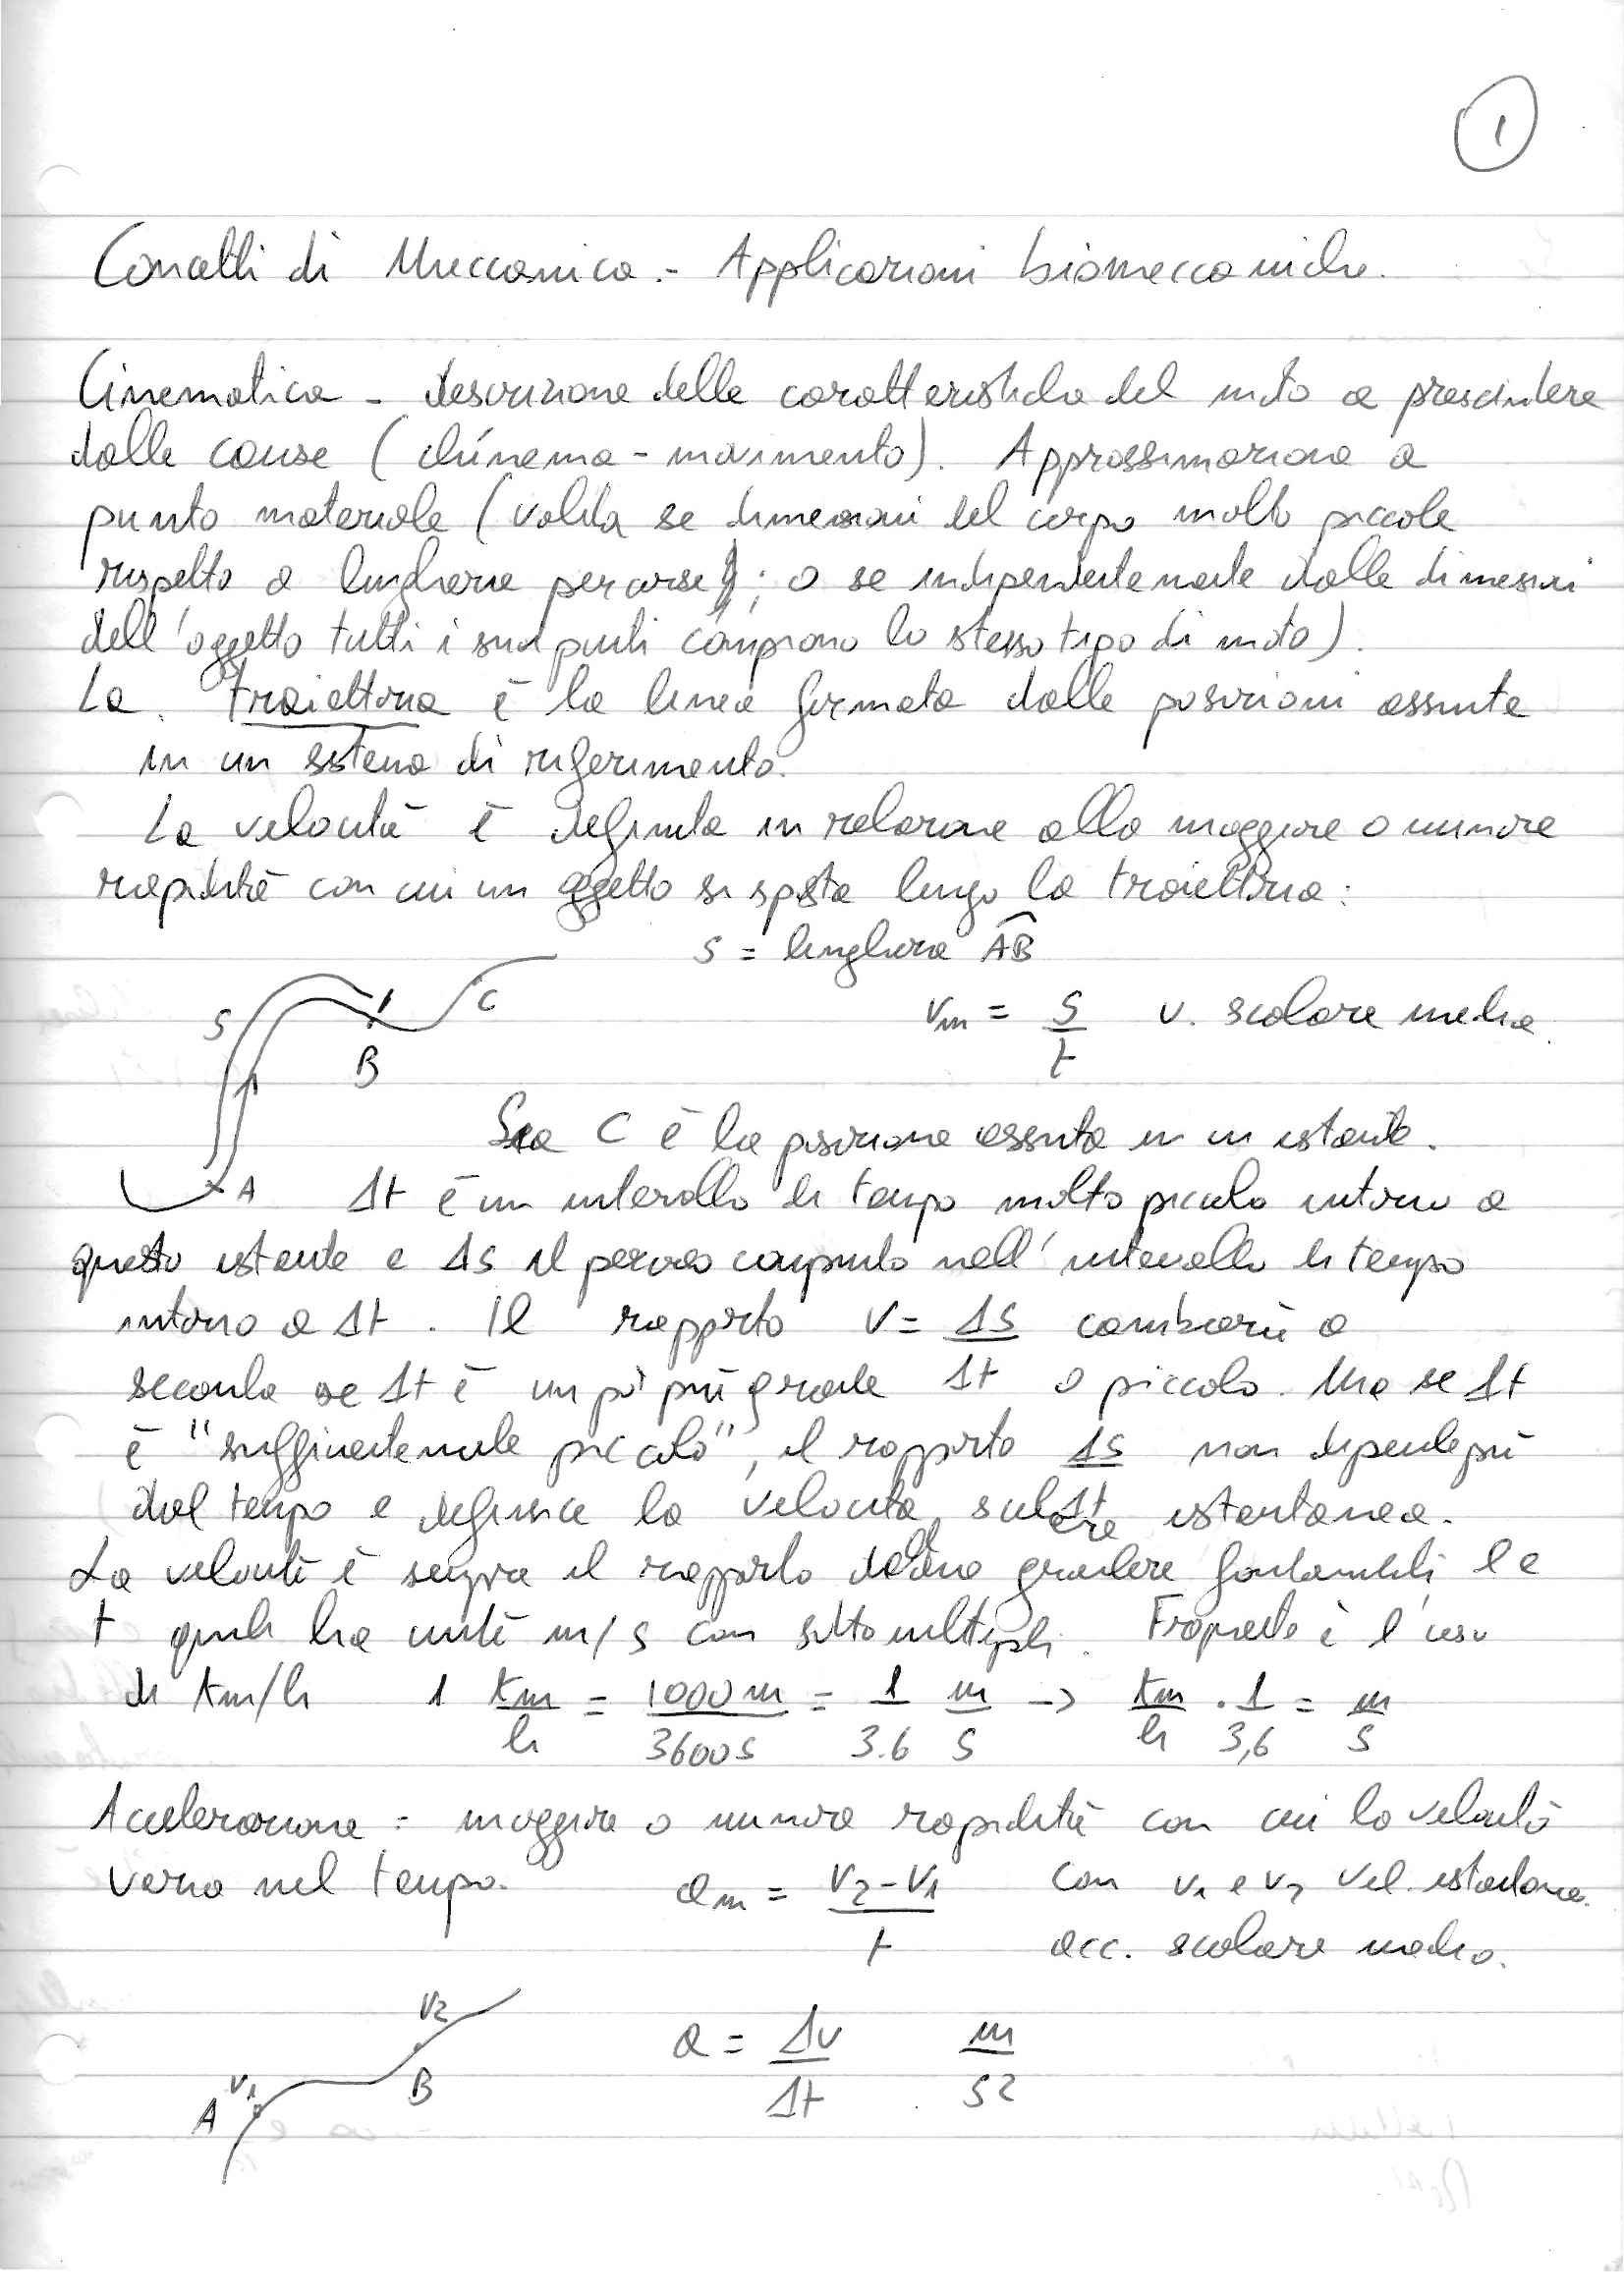 1
Concetti di Meccanica - Applicazioni biomeccaniche.
Cinematica - descrizione delle caratteristiche del moto a prescindere
dalle cause (chínema - movimento). Approssimazione a
punto materiale (valida se dimensioni del corpo molto piccole
rispetto a lunghezze percorse ; o se indipendentemente dalle dimensioni
dell'oggetto tutti i suoi punti compiono lo stesso tipo di moto).
La traiettoria è la linea formata dalle posizioni assunte
in un sistema di riferimento.
La velocità è definita in relazione alla maggiore o minore
rapidità con cui un oggetto si sposta lungo la traiettoria:
s = lunghezza AB
S
B
C
A
vm = s/t v. scalare media
Sia C è la posizione assunta in un istante.
Δt è un intervallo di tempo molto piccolo intorno a
questo istante e Δs il percorso compiuto nell'intervallo di tempo
intorno a Δt. Il rapporto v = Δs/Δt cambierà a
seconda se Δt è un pò più grande o piccolo. Ma se Δt
è "sufficientemente piccolo", il rapporto Δs/Δt non dipende più
dal tempo e definisce la velocità scalare istantanea.
La velocità è sempre il rapporto di due grandezze fondamentali, l e
t quindi ha unità m/s con sottomultipli. Frequente è l'uso
di km/h 1 km/h = 1000 m/3600 s = 1/3.6 m/s -> km/h · 1/3,6 = m/s
Accelerazione = maggiore o minore rapidità con cui la velocità
varia nel tempo. am = v2-v1/t con v1 e v2 vel. istantanee.
acc. scalare media.
v2
B
v1
A
a = Δv/Δt m/s2